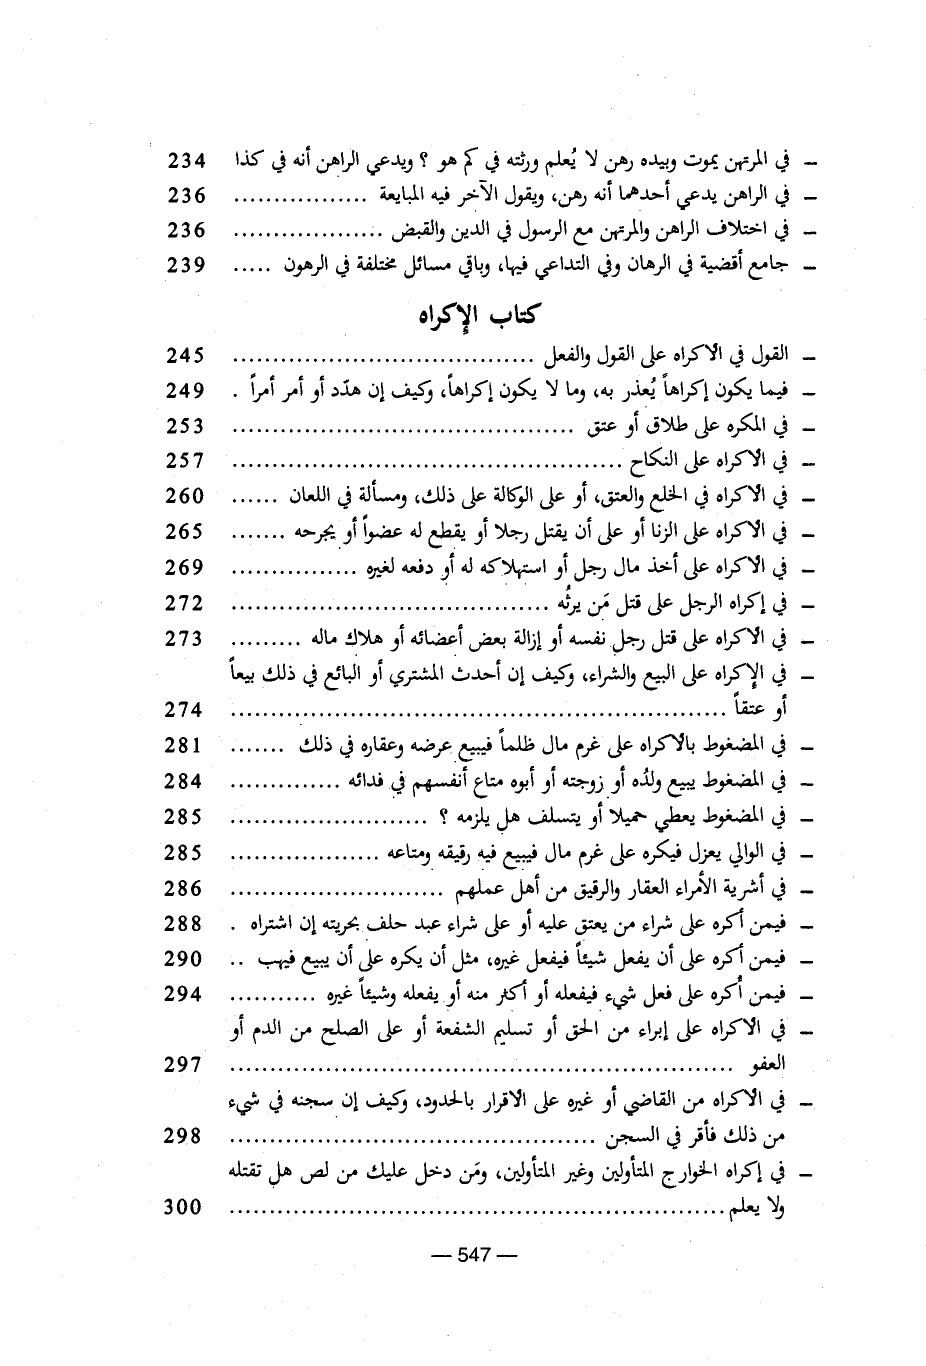 – في المرتهن يموت وبيده رهن لا يُعلم ورثته في كم هو ؟ ويدعي الراهن أنه في كذا 234
– في الراهن يدعي أحدهما أنه رهن، ويقول الآخر فيه المبايعة ................. 236
– في اختلاف الراهن والمرتهن مع الرسول في الدين والقبض ................... 236
– جامع أقضية في الرهان وفي التداعي فيها، وباقي مسائل مختلفة في الرهون ..... 239
كتاب الإكراه
– القول في الاكراه على القول والفعل ..................................... 245
– فيما يكون إكراهاً يُعذر به، وما لا يكون إكراهاً، وكيف إن هدّد أو أمر أمراً . 249
– في المكره على طلاق أو عتق .......................................... 253
– في الاكراه على النكاح ................................................ 257
– في الاكراه في الخلع والعتق، أو على الوكالة على ذلك، ومسألة في اللعان ...... 260
– في الاكراه على الزنا أو على أن يقتل رجلا أو يقطع له عضواً أو يجرحه ....... 265
– في الاكراه على أخذ مال رجل أو استهلاكه له أو دفعه لغيره ................ 269
– في إكراه الرجل على قتل مَن يرثُه ....................................... 272
– في الاكراه على قتل رجل نفسه أو إزالة بعض أعضائه أو هلاك ماله ......... 273
– في الإكراه على البيع والشراء، وكيف إن أحدث المشتري أو البائع في ذلك بيعاً
أو عتقاً ............................................................. 274
– في المضغوط بالاكراه على غرم مال ظلماً فيبيع عرضه وعقاره في ذلك ....... 281
– في المضغوط يبيع ولدُه أو زوجته أو أبوه متاع أنفسهم في فدائه .............. 284
– في المضغوط يعطي حميلا أو يتسلف هل يلزمه ؟ ......................... 285
– في الوالي يعزل فيكره على غرم مال فيبيع فيه رقيقه ومتاعه ................... 285
– في أشرية الأمراء العقار والرقيق من أهل عملهم ........................... 286
– فيمن أكره على شراء من يعتق عليه أو على شراء عبد حلف بحريته إن اشتراه . 288
– فيمن أكره على أن يفعل شيئاً فيفعل غيره، مثل أن يكره على أن يبيع فيهب .. 290
– فيمن أكره على فعل شيء فيفعله أو أكثر منه أو يفعله وشيئاً غيره ........... 294
– في الاكراه على إبراء من الحق أو تسليم الشفعة أو على الصلح من الدم أو
العفو .............................................................. 297
– في الاكراه من القاضي أو غيره على الاقرار بالحدود، وكيف إن سجنه في شيء
من ذلك فأقر في السجن .............................................. 298
– في إكراه الخوارج المتأولين وغير المتأولين، ومَن دخل عليك من لص هل تقتله
ولا يعلم ............................................................. 300
— 547 —